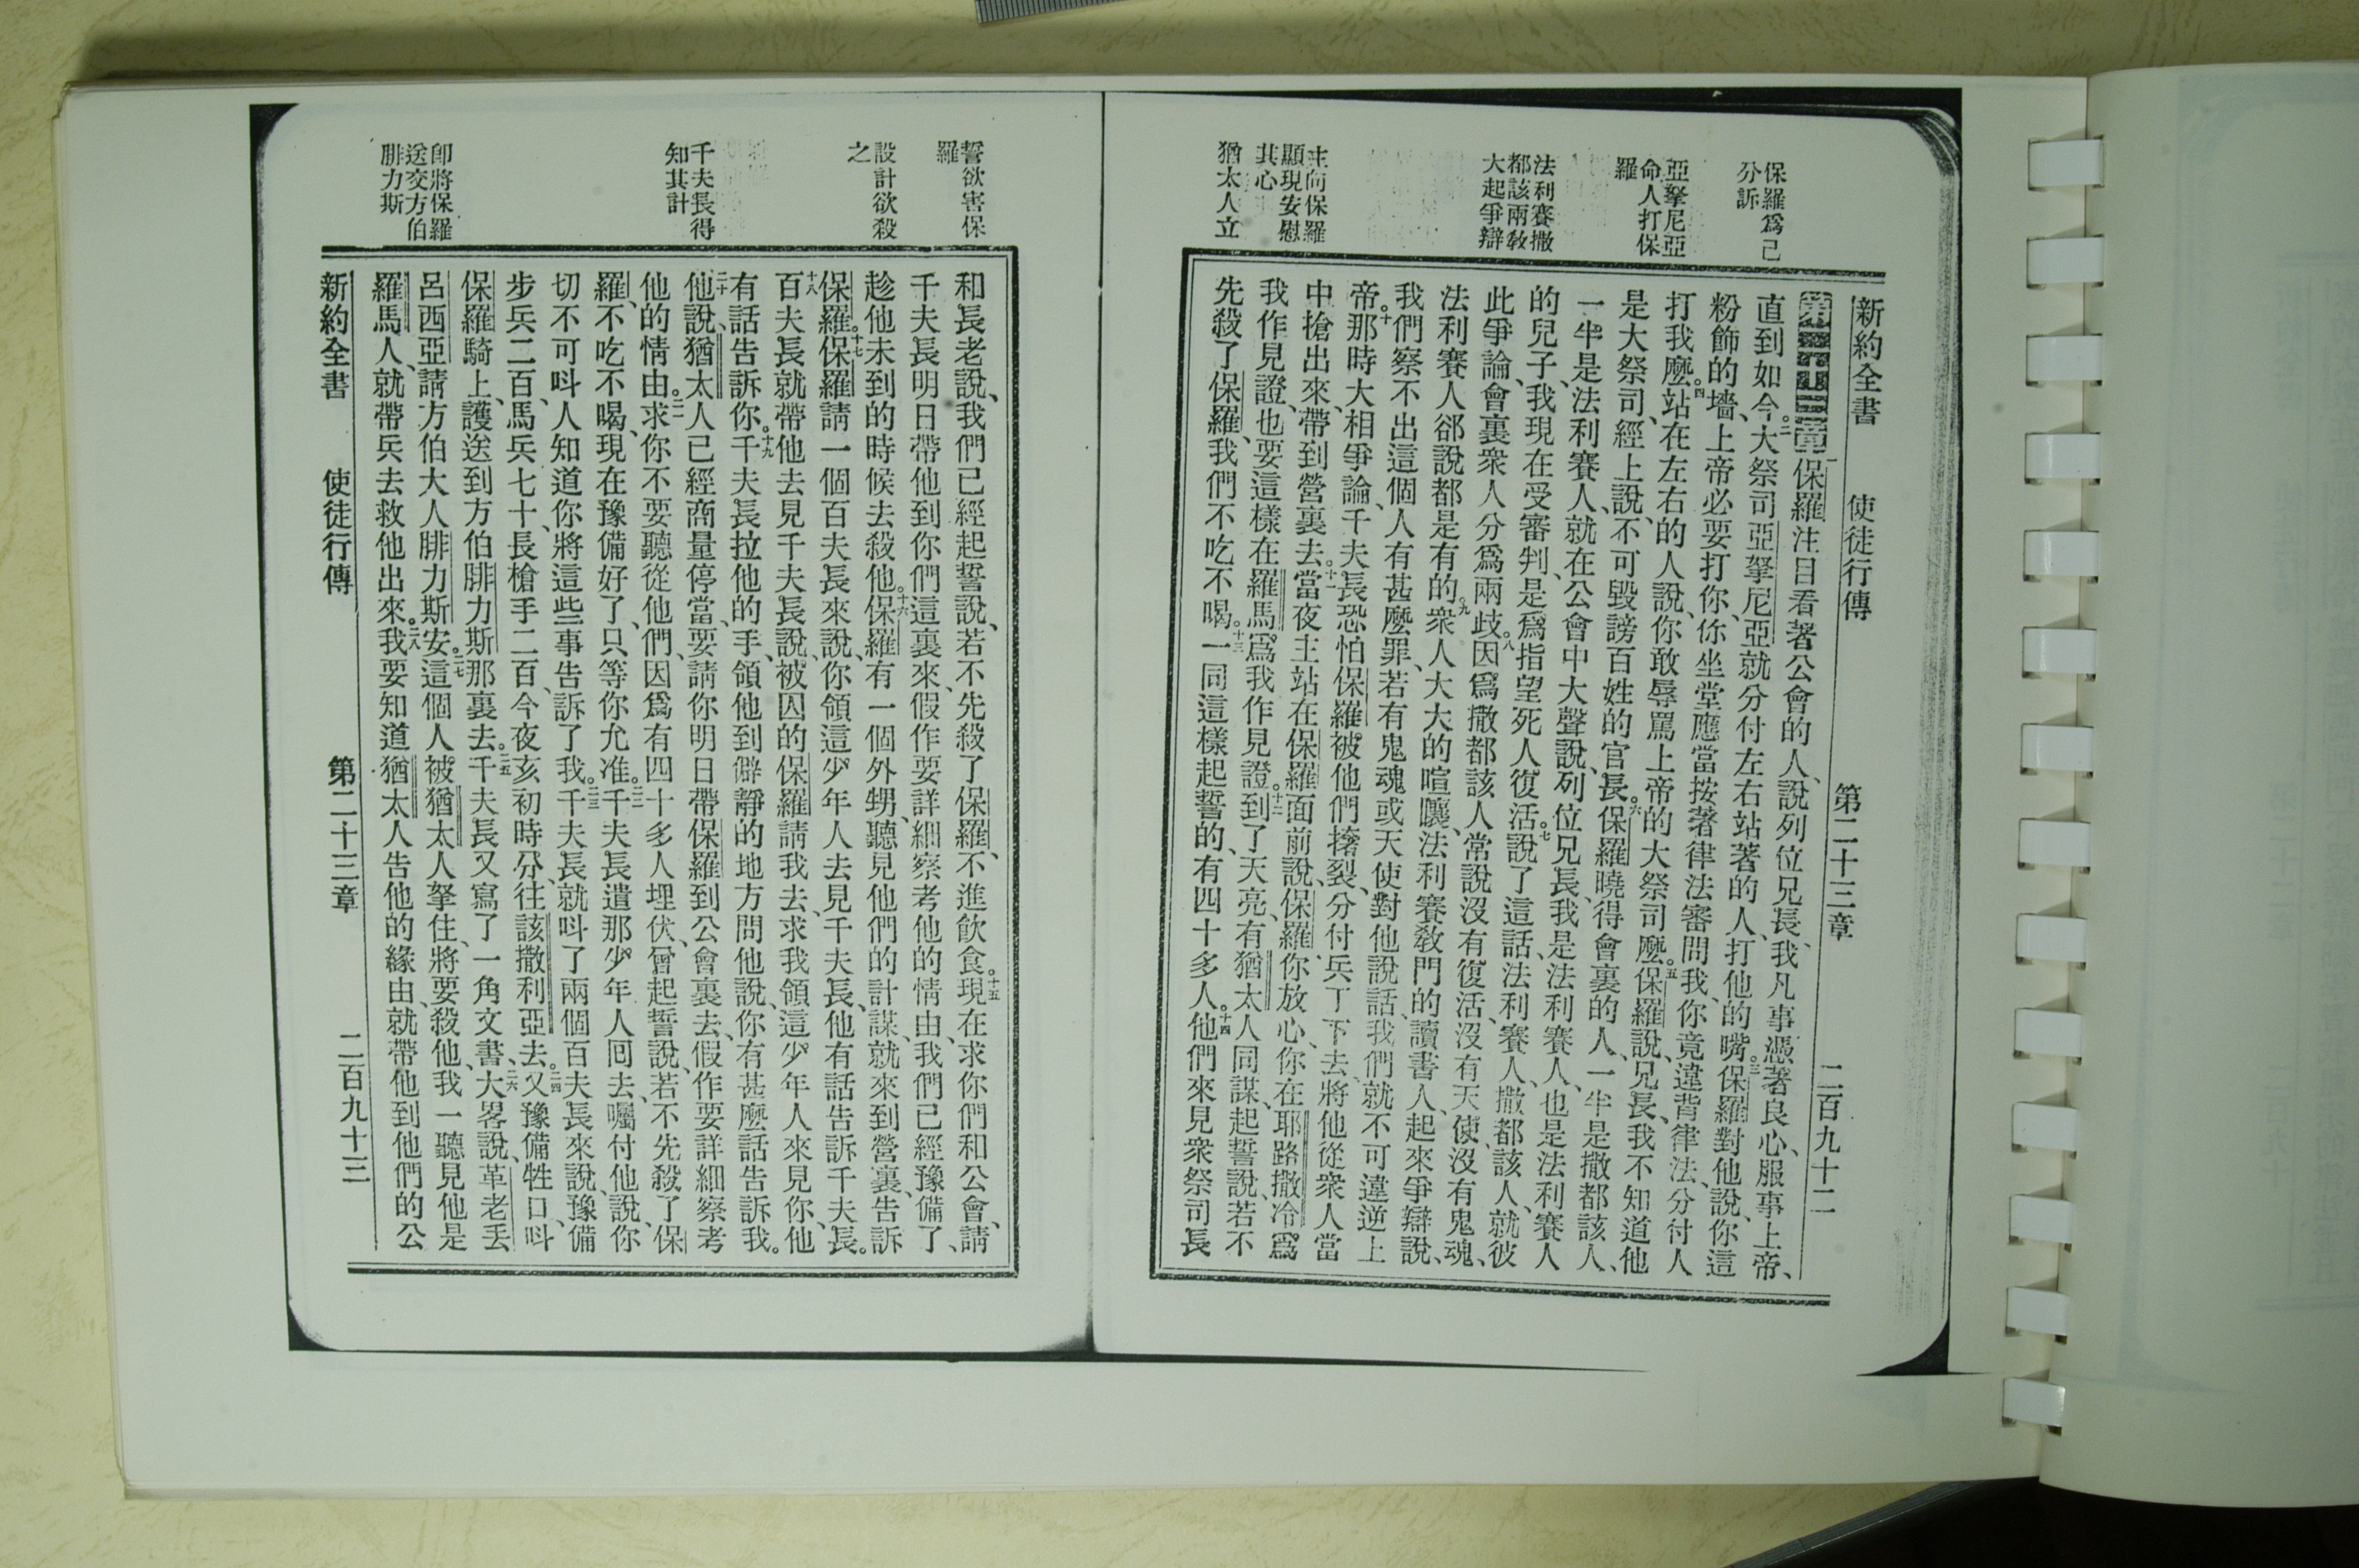 保羅爲己
分訴
亞拏尼亞
命人打保
羅
法利賽撒
都該兩敎
大起爭辯
主向保羅
顯現安慰
其心
猶太人立
新約全書 使徒行傳 第二十三章 二百九十二
第二十三章 一保羅注目看著公會的人、說列位兄長、我凡事憑著良心、服事上帝、
直到如今。二大祭司亞拏尼亞就分付左右站著的人、打他的嘴。三保羅對他說、你這
粉飾的墻、上帝必要打你、你坐堂應當按著律法審問我、你竟違背律法、分付人
打我麼。四站在左右的人說、你敢辱罵上帝的大祭司麼。五保羅說、兄長、我不知道他
是大祭司、經上說、不可毀謗百姓的官長。六保羅曉得會裏的人、一半是撒都該人、
一半是法利賽人、就在公會中大聲說、列位兄長、我是法利賽人、也是法利賽人
的兒子、我現在受審判、是爲指望死人復活。七說了這話、法利賽人、撒都該人、就彼
此爭論、會裏衆人分爲兩歧。八因爲撒都該人常說沒有復活、沒有天使、沒有鬼魂、
法利賽人郤說都是有的。九衆人大大的喧嚷、法利賽敎門的讀書人、起來爭辯說、
我們察不出這個人有甚麼罪、若有鬼魂或天使、對他說話、我們就不可違逆上
帝。十那時大相爭論、千夫長恐怕保羅被他們撦裂、分付兵丁下去、將他從衆人當
中搶出來、帶到營裏去。十一當夜主站在保羅面前說、保羅、你放心、你在耶路撒冷、爲
我作見證、也要這樣在羅馬、爲我作見證。十二到了天亮、有猶太人同謀起誓說、若不
先殺了保羅、我們不吃不喝。十三一同這樣起誓的、有四十多人。十四他們來見衆祭司長
誓欲害保
羅
設計欲殺
之
千夫長得
知其計
卽將保羅
送交方伯
腓力斯
和長老說、我們已經起誓說、若不先殺了保羅、不進飲食。十五現在求你們和公會、請
千夫長明日帶他到你們這裏來、假作要詳細察考他的情由、我們已經豫備了、
趁他未到的時候去殺他。十六保羅有一個外甥、聽見他們的計謀、就來到營裏、告訴
保羅。十七保羅請一個百夫長來說、你領這少年人去見千夫長、他有話告訴千夫長。
十八百夫長就帶他去見千夫長說、被囚的保羅請我去、求我領這少年人來見你、他
有話告訴你。十九千夫長拉他的手、領他到僻靜的地方問他說、你有甚麼話告訴我。
二十他說、猶太人已經商量停當、要請你明日帶保羅到公會裏去、假作要詳細察考
他的情由。二一求你不要聽從他們、因爲有四十多人埋伏、曾起誓說、若不先殺了保
羅、不吃不喝、現在豫備好了、只等你允准。二二千夫長遣那少年人回去、囑付他說、你
切不可呌人知道你將這些事告訴了我。二三千夫長就呌了兩個百夫長來說、豫備
步兵二百、馬兵七十、長槍手二百、今夜亥初時分、往該撒利亞去。二四又豫備牲口、呌
保羅騎上、護送到方伯腓力斯那裏去。二五千夫長又寫了一角文書、二六大畧說、革老丢
呂西亞、請方伯大人腓力斯安。二七這個人被猶太人拏住、將要殺他、我一聽見他是
羅馬人、就帶兵去救他出來。二八我要知道猶太人告他的緣由、就帶他到他們的公
新約全書 使徒行傳 第二十三章 二百九十三